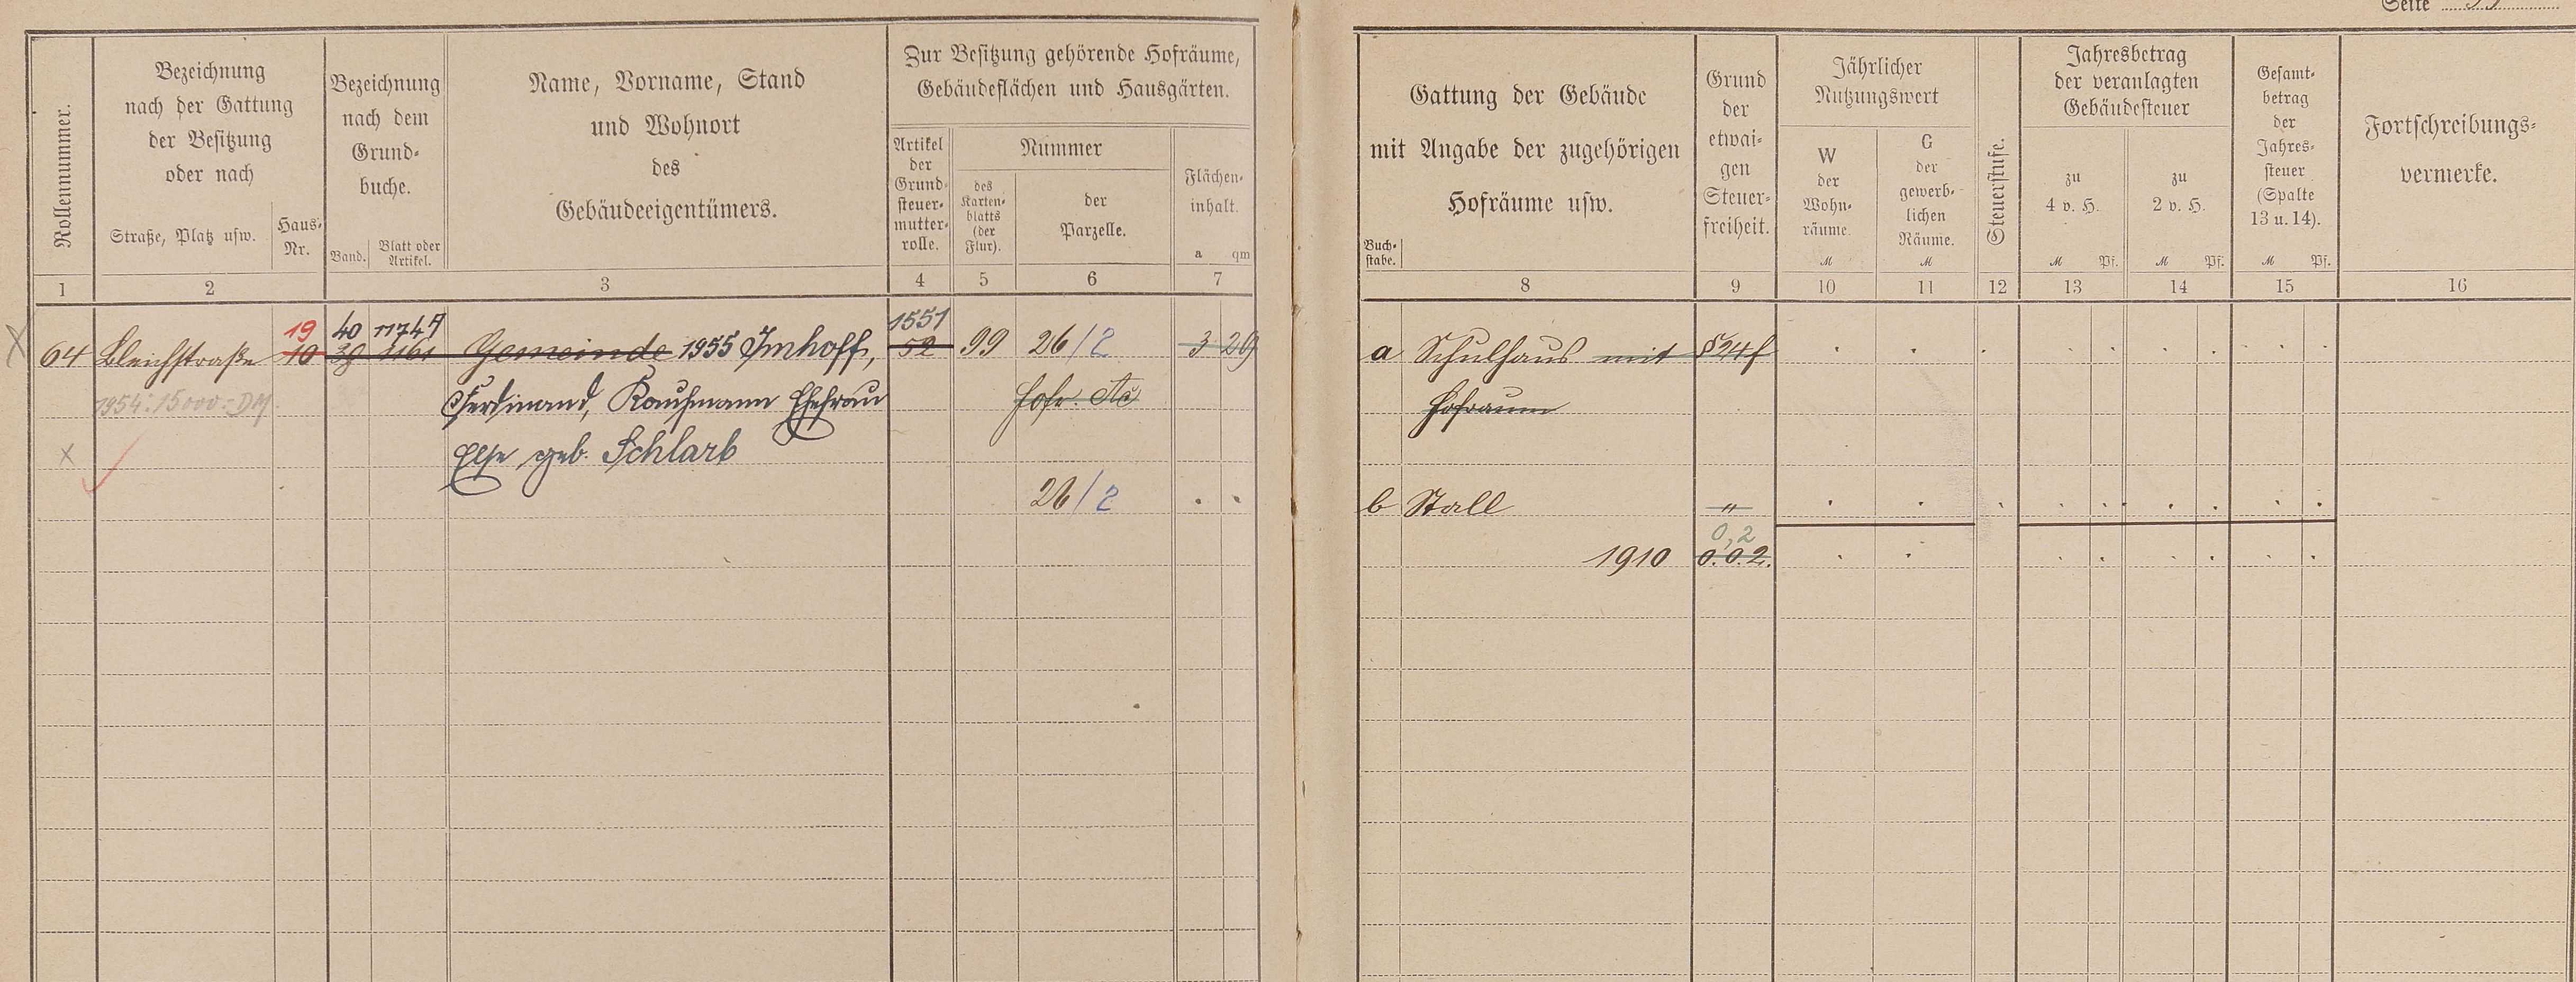 Seite
Rollennummer.
Bezeichnung
nach der Gattung
der Besitzung
oder nach
Straße, Platz usw.
Haus-
Nr.
Bezeichnung
nach dem
Grund-
buche.
Band.
Blatt oder
Artikel.
Name, Vorname, Stand
und Wohnort
des
Gebäudeeigentümers.
Zur Besitzung gehörende Hofräume,
Gebäudeflächen und Hausgärten.
Artikel
der
Grund-
steuer-
mutter-
rolle.
Nummer
des
Karten-
blatts
(der
Flur).
der
Parzelle.
Flächen-
inhalt.
a qm
1 2 3 4 5 6 7
19 40 1174A 1551
64 Bleichstraße 10 Gemeinde 1955 Imhoff, 52 99 26/2 3 29
1954: 15000.- DM Ferdinand, Kaufmann Ehefrau Hofr.
Else geb. Schlarb
26/2
Gattung der Gebäude
mit Angabe der zugehörigen
Hofräume usw.
Buch-
stabe.
Grund
der
etwai-
gen
Steuer-
freiheit.
Jährlicher
Nutzungswert
W
der
Wohn-
räume.
M
G
der
gewerb-
lichen
Räume.
M
Steuerstufe.
Jahresbetrag
der veranlagten
Gebäudesteuer
zu
4 v. H.
M Pf.
zu
2 v. H.
M Pf.
Gesamt-
betrag
der
Jahres-
steuer
(Spalte
13 u. 14).
M Pf.
Fortschreibungs-
vermerke.
8 9 10 11 12 13 14 15 16
a Schulhaus mit
Hofraum
b Stall "
0,2
1910 0.0.2.